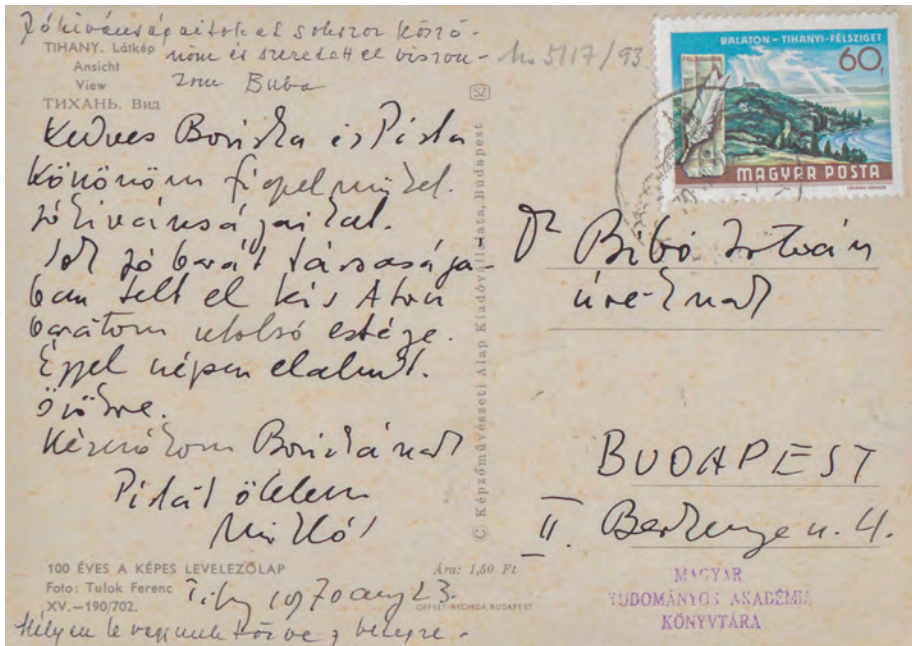 Jókívánságaitokat sokszor köszö-
nöm és szeretettel viszon-
zom Buba
No 5117/93
TIHANY. Látkép
Ansicht
View
ТИХАНЬ. Вид
Kedves Boriska és Pista
Köszönöm figyelmüket.
jókívánságaikat.
jó barát társaságá-
ban telt el kis Aton
barátom utolsó estéje.
Éjjel szépen elaludt.
örökre.
Kézcsókom Boriskának
Pistát ölelem
Mikló!
100 ÉVES A KÉPES LEVELEZŐLAP
Foto: Tulok Ferenc
XV.—190/702.
Ára: 1,50 Ft
OFFSET-NYOMDA, BUDAPEST
1970 aug 23.
Helyen le vagyunk törve
© Képzőművészeti Alap Kiadóvállalata, Budapest
SZ
BALATON - TIHANYI-FÉLSZIGET
60f
MAGYAR POSTA
Dr Bibó István
úréknak
BUDAPEST
II. Berkenye u. 4.
MAGYAR
TUDOMÁNYOS AKADÉMIA
KÖNYVTÁRA